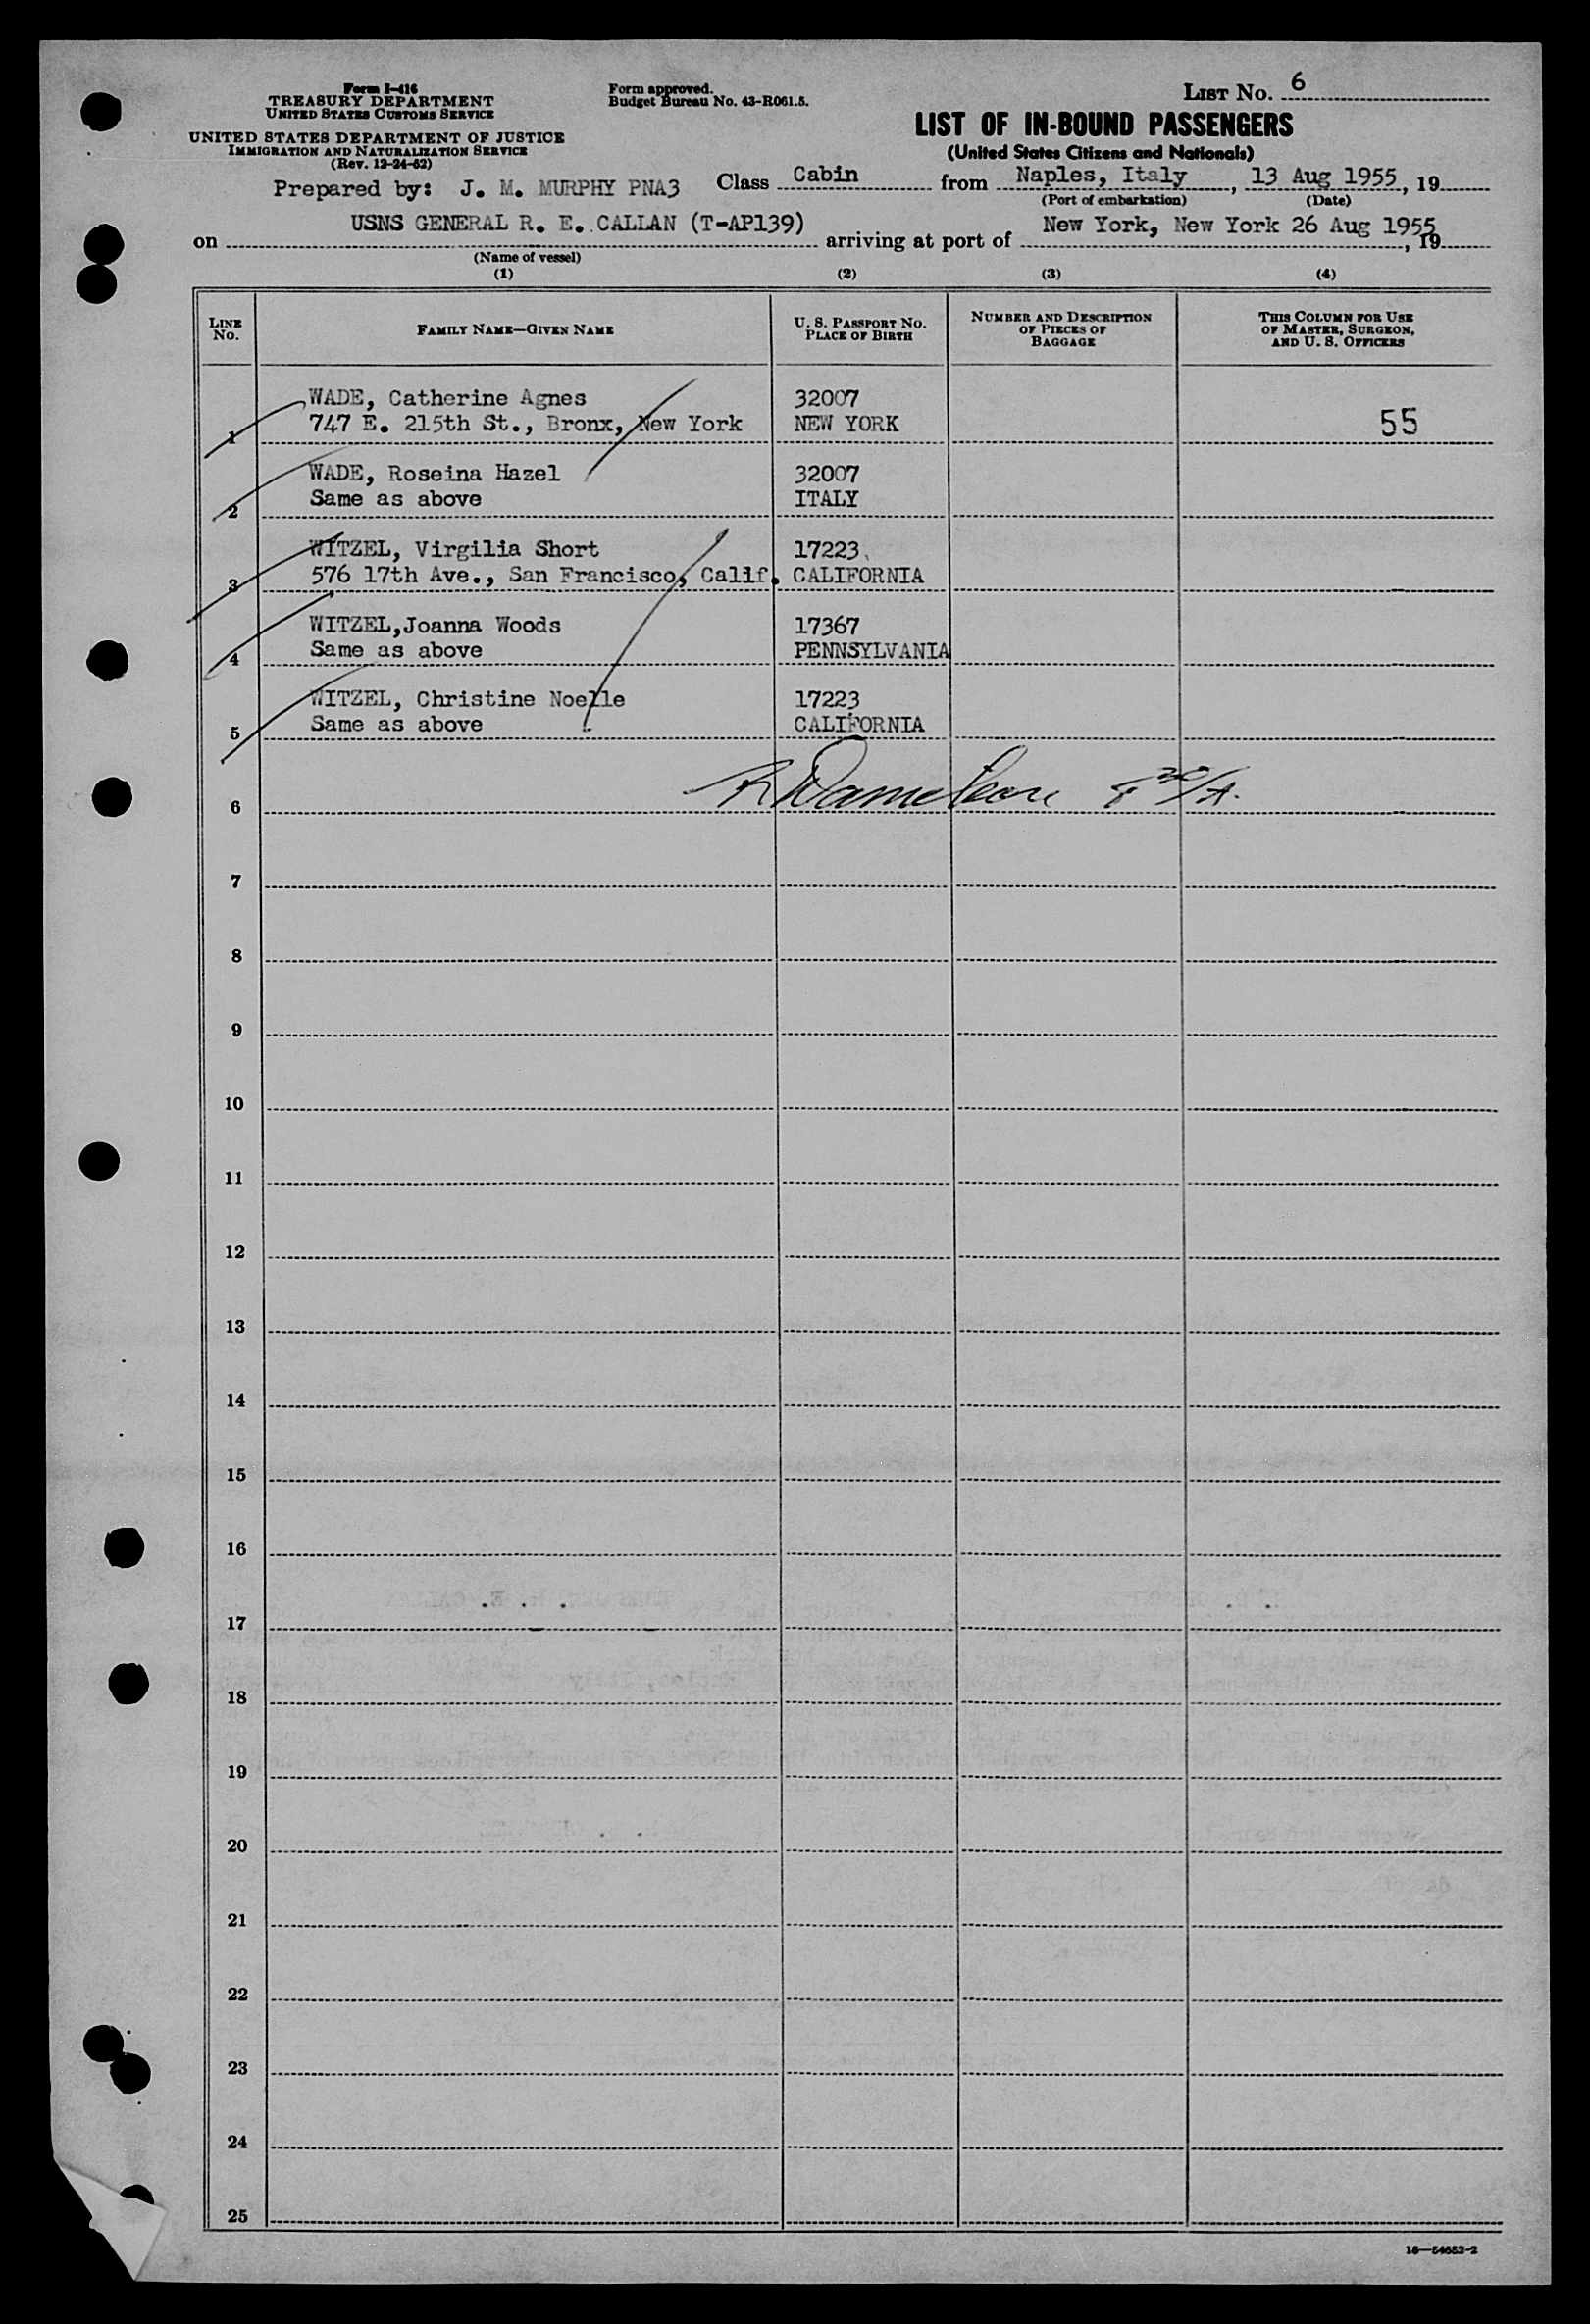 Form I-416
TREASURY DEPARTMENT
UNITED STATES CUSTOMS SERVICE
UNITED STATES DEPARTMENT OF JUSTICE
IMMIGRATION AND NATURALIZATION SERVICE
(Rev. 12-24-52)
Form approved.
Budget Bureau No. 43-R061.5.
LIST No. 6
LIST OF IN-BOUND PASSENGERS
(United States Citizens and Nationals)
Prepared by: J. M. MURPHY PNA3 Class Cabin from Naples, Italy, 13 Aug 1955, 19
(Port of embarkation) (Date)
on USNS GENERAL R. E. CALLAN (T-AP139) arriving at port of New York, New York 26 Aug 1955, 19
(Name of vessel)
(1) (2) (3) (4)
LINE No. FAMILY NAME—GIVEN NAME U. S. PASSPORT No. PLACE OF BIRTH NUMBER AND DESCRIPTION OF PIECES OF BAGGAGE THIS COLUMN FOR USE OF MASTER, SURGEON, AND U. S. OFFICERS
WADE, Catherine Agnes 32007
1 747 E. 215th St., Bronx, New York NEW YORK 55
WADE, Roseina Hazel 32007
2 Same as above ITALY
WITZEL, Virgilia Short 17223
3 576 17th Ave., San Francisco, Calif. CALIFORNIA
WITZEL,Joanna Woods 17367
4 Same as above PENNSYLVANIA
WITZEL, Christine Noelle 17223
5 Same as above CALIFORNIA
6
7
8
9
10
11
12
13
14
15
16
17
18
19
20
21
22
23
24
25
16—54652-2